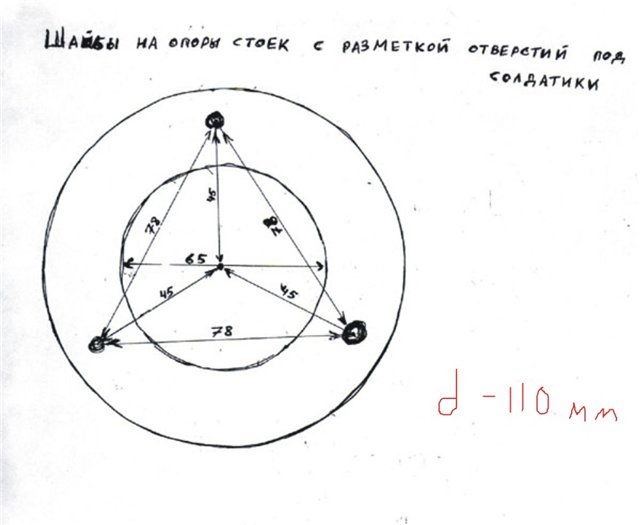 ШАЙБЫ НА ОПОРЫ СТОЕК С РАЗМЕТКОЙ ОТВЕРСТИЙ ПОД
СОЛДАТИКИ
45
78
78
65
45
45
78
d - 110 мм